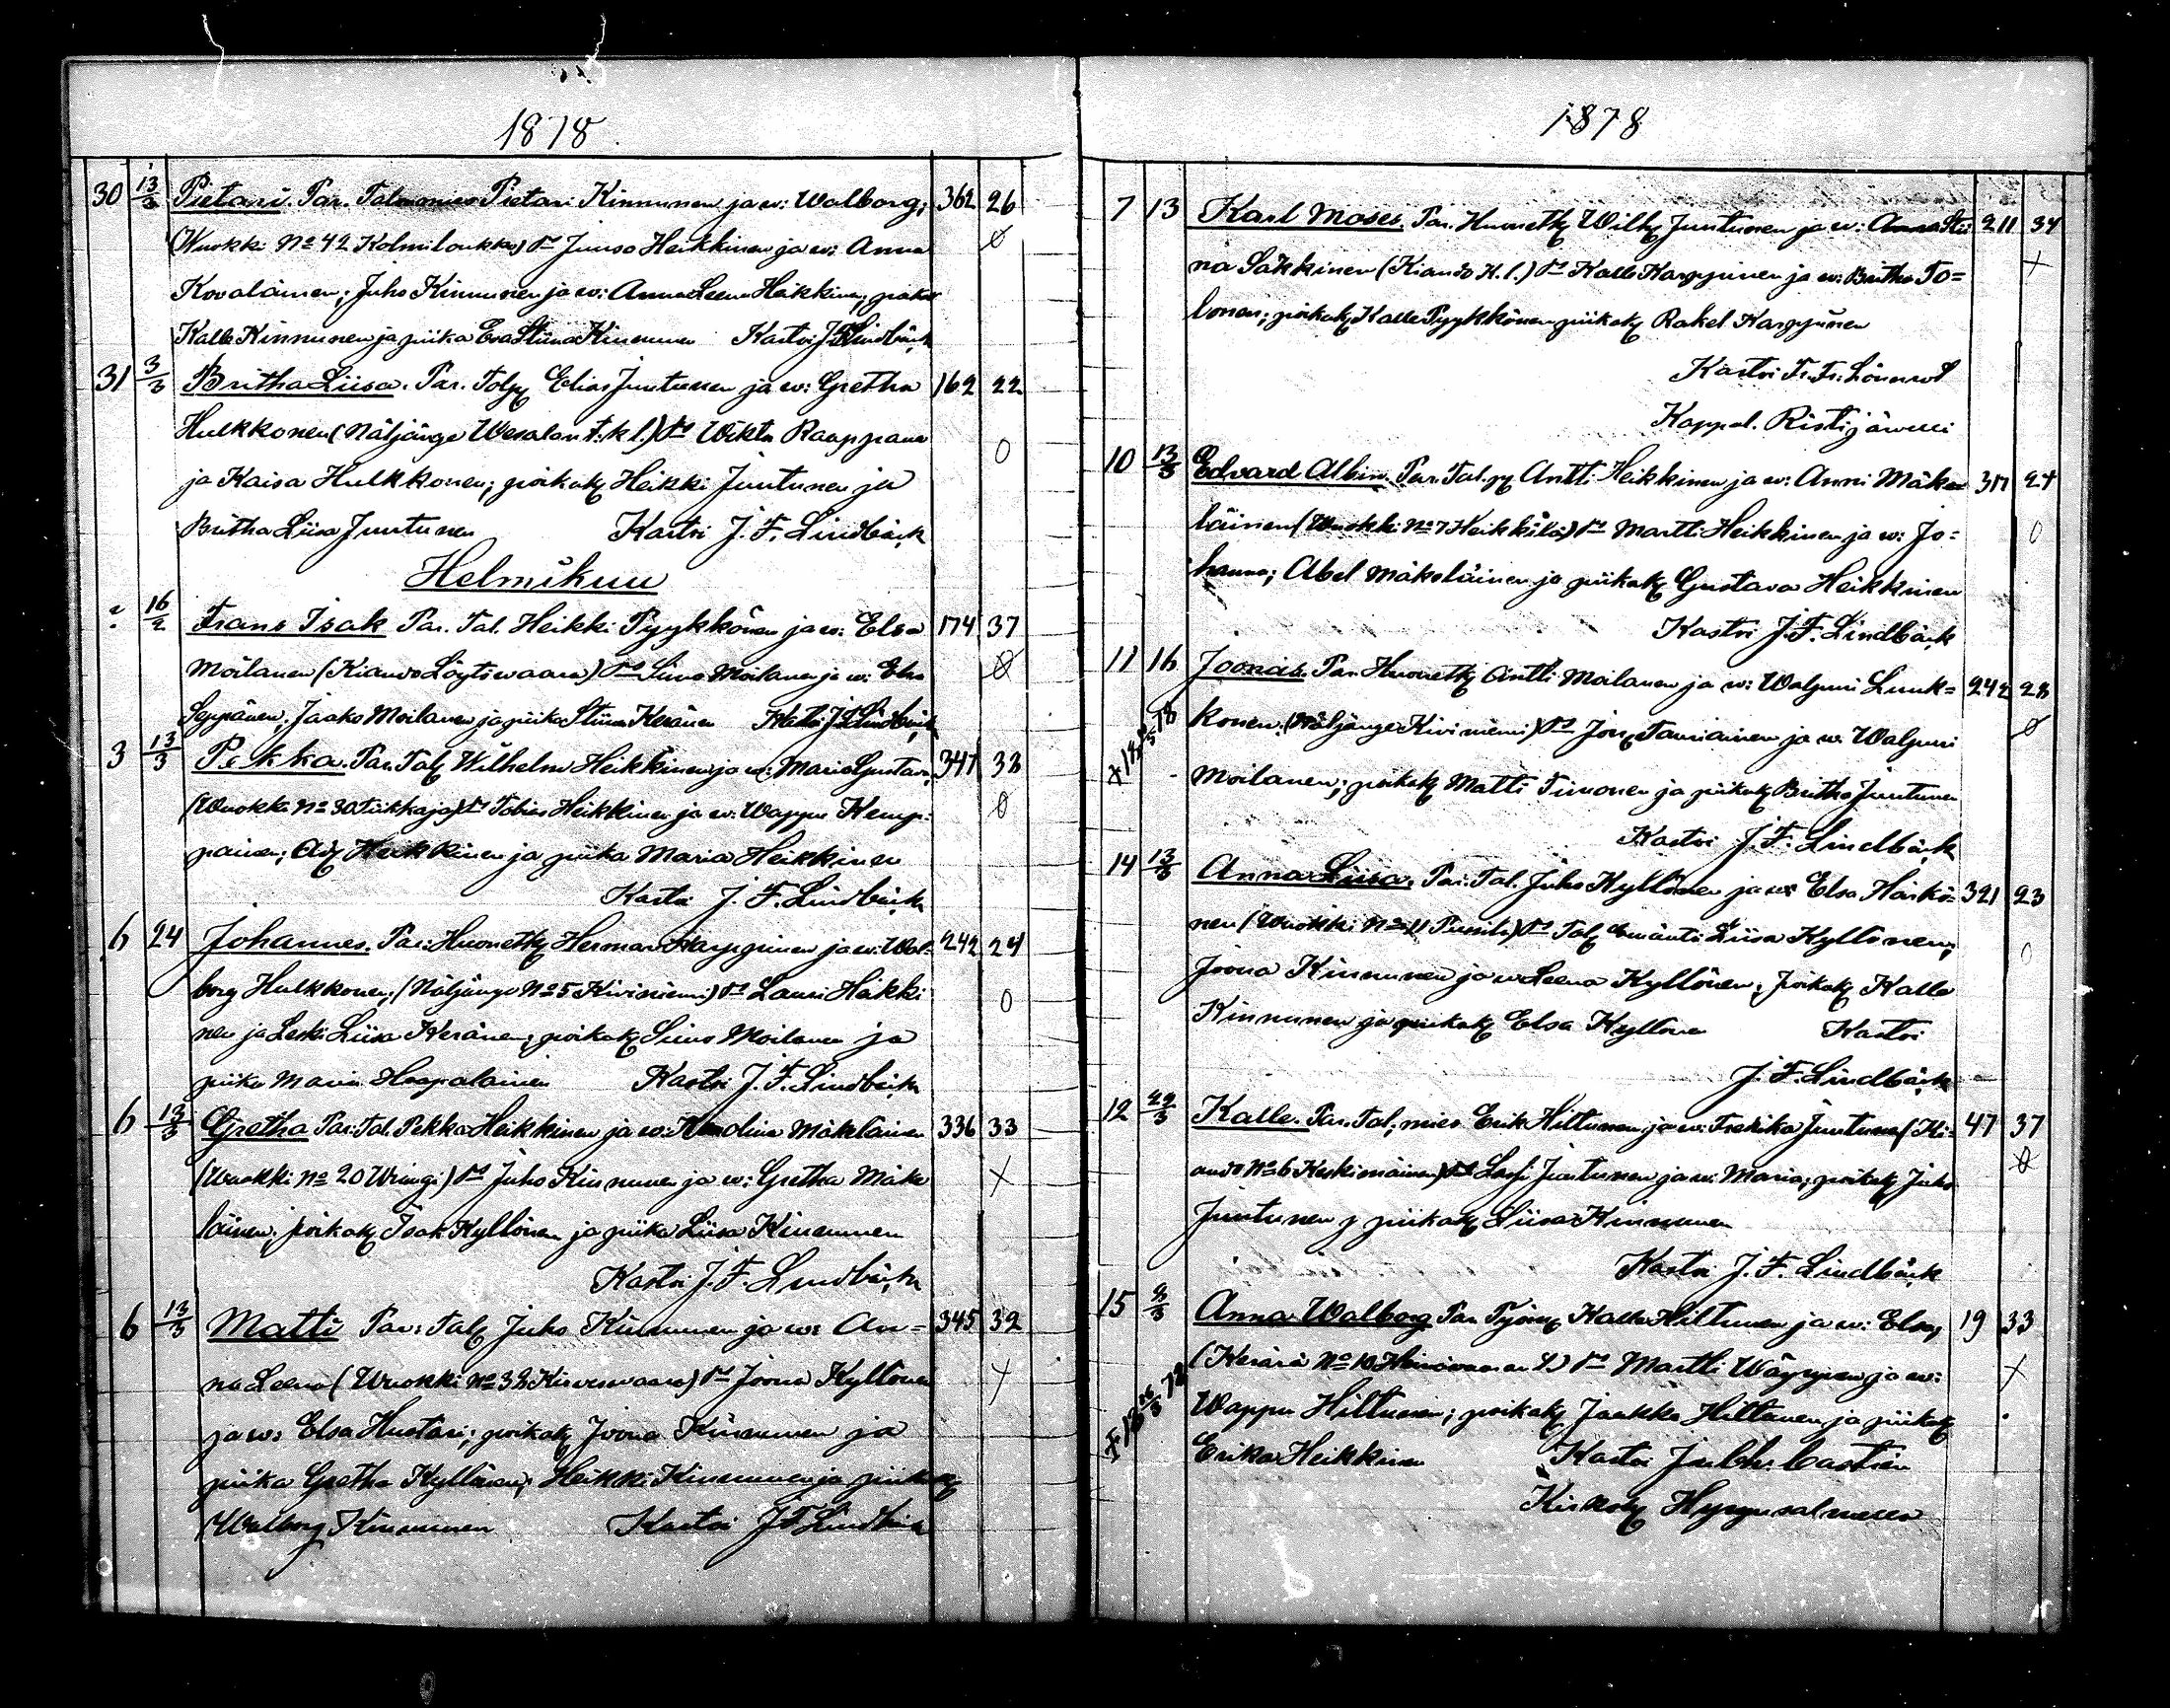 1878.
30 13/3 Pietari. Par. Talonmies Pietari Kinnunen ja w: Walborg; 362 26
(Wuokki No 42 Kolmiloukko) Juuso Heikkinen ja w: Anna
Kovalainen; Juho Kinnunen ja w: Anna Leena Heikkinen;
Kalle Kinnunen ja piika Eva Stiina Kinnunen Kastoi J. F. Lindbäck
31 3/3 Britha Liisa. Par. Elias Juntunen ja w: Gretha 162 22
Hulkkonen (Näljänge Wesalan t. k. l.) Wikto Raappana
ja Kaisa Hulkkonen; poikak Heikki Juntunen ja
Britha Liisa Juntunen Kastoi J. F. Lindbäck
Helmikuu
16/2 Frans Isak Par. Tal. Heikki Pyykkönen ja w: Elsa 174 37
Moilanen (Kiando Löytöwaara) Simo Moilanen ja w: Elsa
Seppänen; Jaako Moilanen ja piika Stiina Keränen Kastoi J. F. Lindbäck
3 13/3 Pekka. Par. Tal Wilhelm Heikkinen ja w: Maria Gustava 347 38
(Wuokki No 30 Tiikkaja) Tobias Heikkinen ja w: Wappu Kemp-
painen; Heikkinen ja piika Maria Heikkinen
Kastoi J. F. Lindbäck
6 24 Johannes. Par: Huonettk Herman Karppinen ja w: Wal- 242 24
borg Hulkkonen; (Näljänge No 5 Kiviniemi) Lauri Heikki
nen ja Leski Liisa Keränen; poikak Simo Moilanen ja
piika Maria Haapalainen Kastoi J. F. Lindbäck
6 13/3 Gretha Par: Tal. Pekka Heikkinen ja w: Mäkeläinen 336 33
(Wuokki No 20 Wiingi) Juho Kinnunen ja w: Gretha Mäke
läinen; poikak Isak Kyllönen ja piika Liisa Kinnunen
Kastoi J. F. Lindbäck
6 13/3 Matti Par: Tal Juho Kinnunen ja w: An= 345 32
na Leena (Wuokki No 38 Kirveswaara) Joona Kyllönen
ja w: Elsa Huotari; poikak Joona Kinnunen ja
piika Gretha Kyllönen; Heikki Kinnunen ja piikak
Walborg Kinnunen Kastoi J F Lindbäck
1878
7 13 Karl Moses. Par. Huonettk Wilh Juntunen ja w: Anna Stii 211 34
na Säkkinen (Kiando K. l.) Kalle Karppinen ja w: Britha To=
lonen; poikak Kalle Pyykkönen piikak Rakel Karppinen
Kastoi Fr. Fr. Lönnrot
Kappal. Ristijärwellä
10 13/3 Edvard Albin. Par. Tal. Antti Heikkinen ja w: Anni Mäke= 317 24
läinen (Wuokki No 7 Heikkilä) Martti Heikkinen ja w: Jo=
hanna; Abel Mäkeläinen ja piikak Gustava Heikkinen
Kastoi J. F. Lindbäck
11 16 Joonas. Par. Huonettk Antti Moilanen ja w: Walpuri Luuk= 242 28
konen. (Näljänge Kiviniemi) Tauriainen ja w. Walpuri
Moilanen; poikak Matti Timonen ja piikak Britha Juntunen
Kastoi J. F. Lindbäck
14 13/3 Anna Liisa. Par. Tal. Juho Kyllönen ja w: Elsa Härkö= 321 23
nen (Wuokki No 11) Tal emäntä Liisa Kyllönen;
Joona Kinnunen ja w Leena Kyllönen; poikak Kalle
Kinnunen ja piikak Elsa Kyllönen Kastoi
J. F. Lindbäck
12 22/3 Kalle. Par. Tal; mies Erik Hiltunen ja w: Fredika Juntunen (Ki= 47 37
ando No 6 Keskimäinen) Lassi Juntunen ja w: Maria; poikak Juho
Juntunen j piikak Liisa Kinnunen
Kastoi J. F. Lindbäck
15 2/3 Anna Walborg Par. Kalle Hiltunen ja w: Elsa, 19 33
(Kerärä No 10) Martti Wäyrynen ja w:
Wappu Hiltunen; poikak Jaakko Hiltunen ja piikak
Erika Heikkinen Kastoi Castrén
Kirkoh Hyrynsalmella